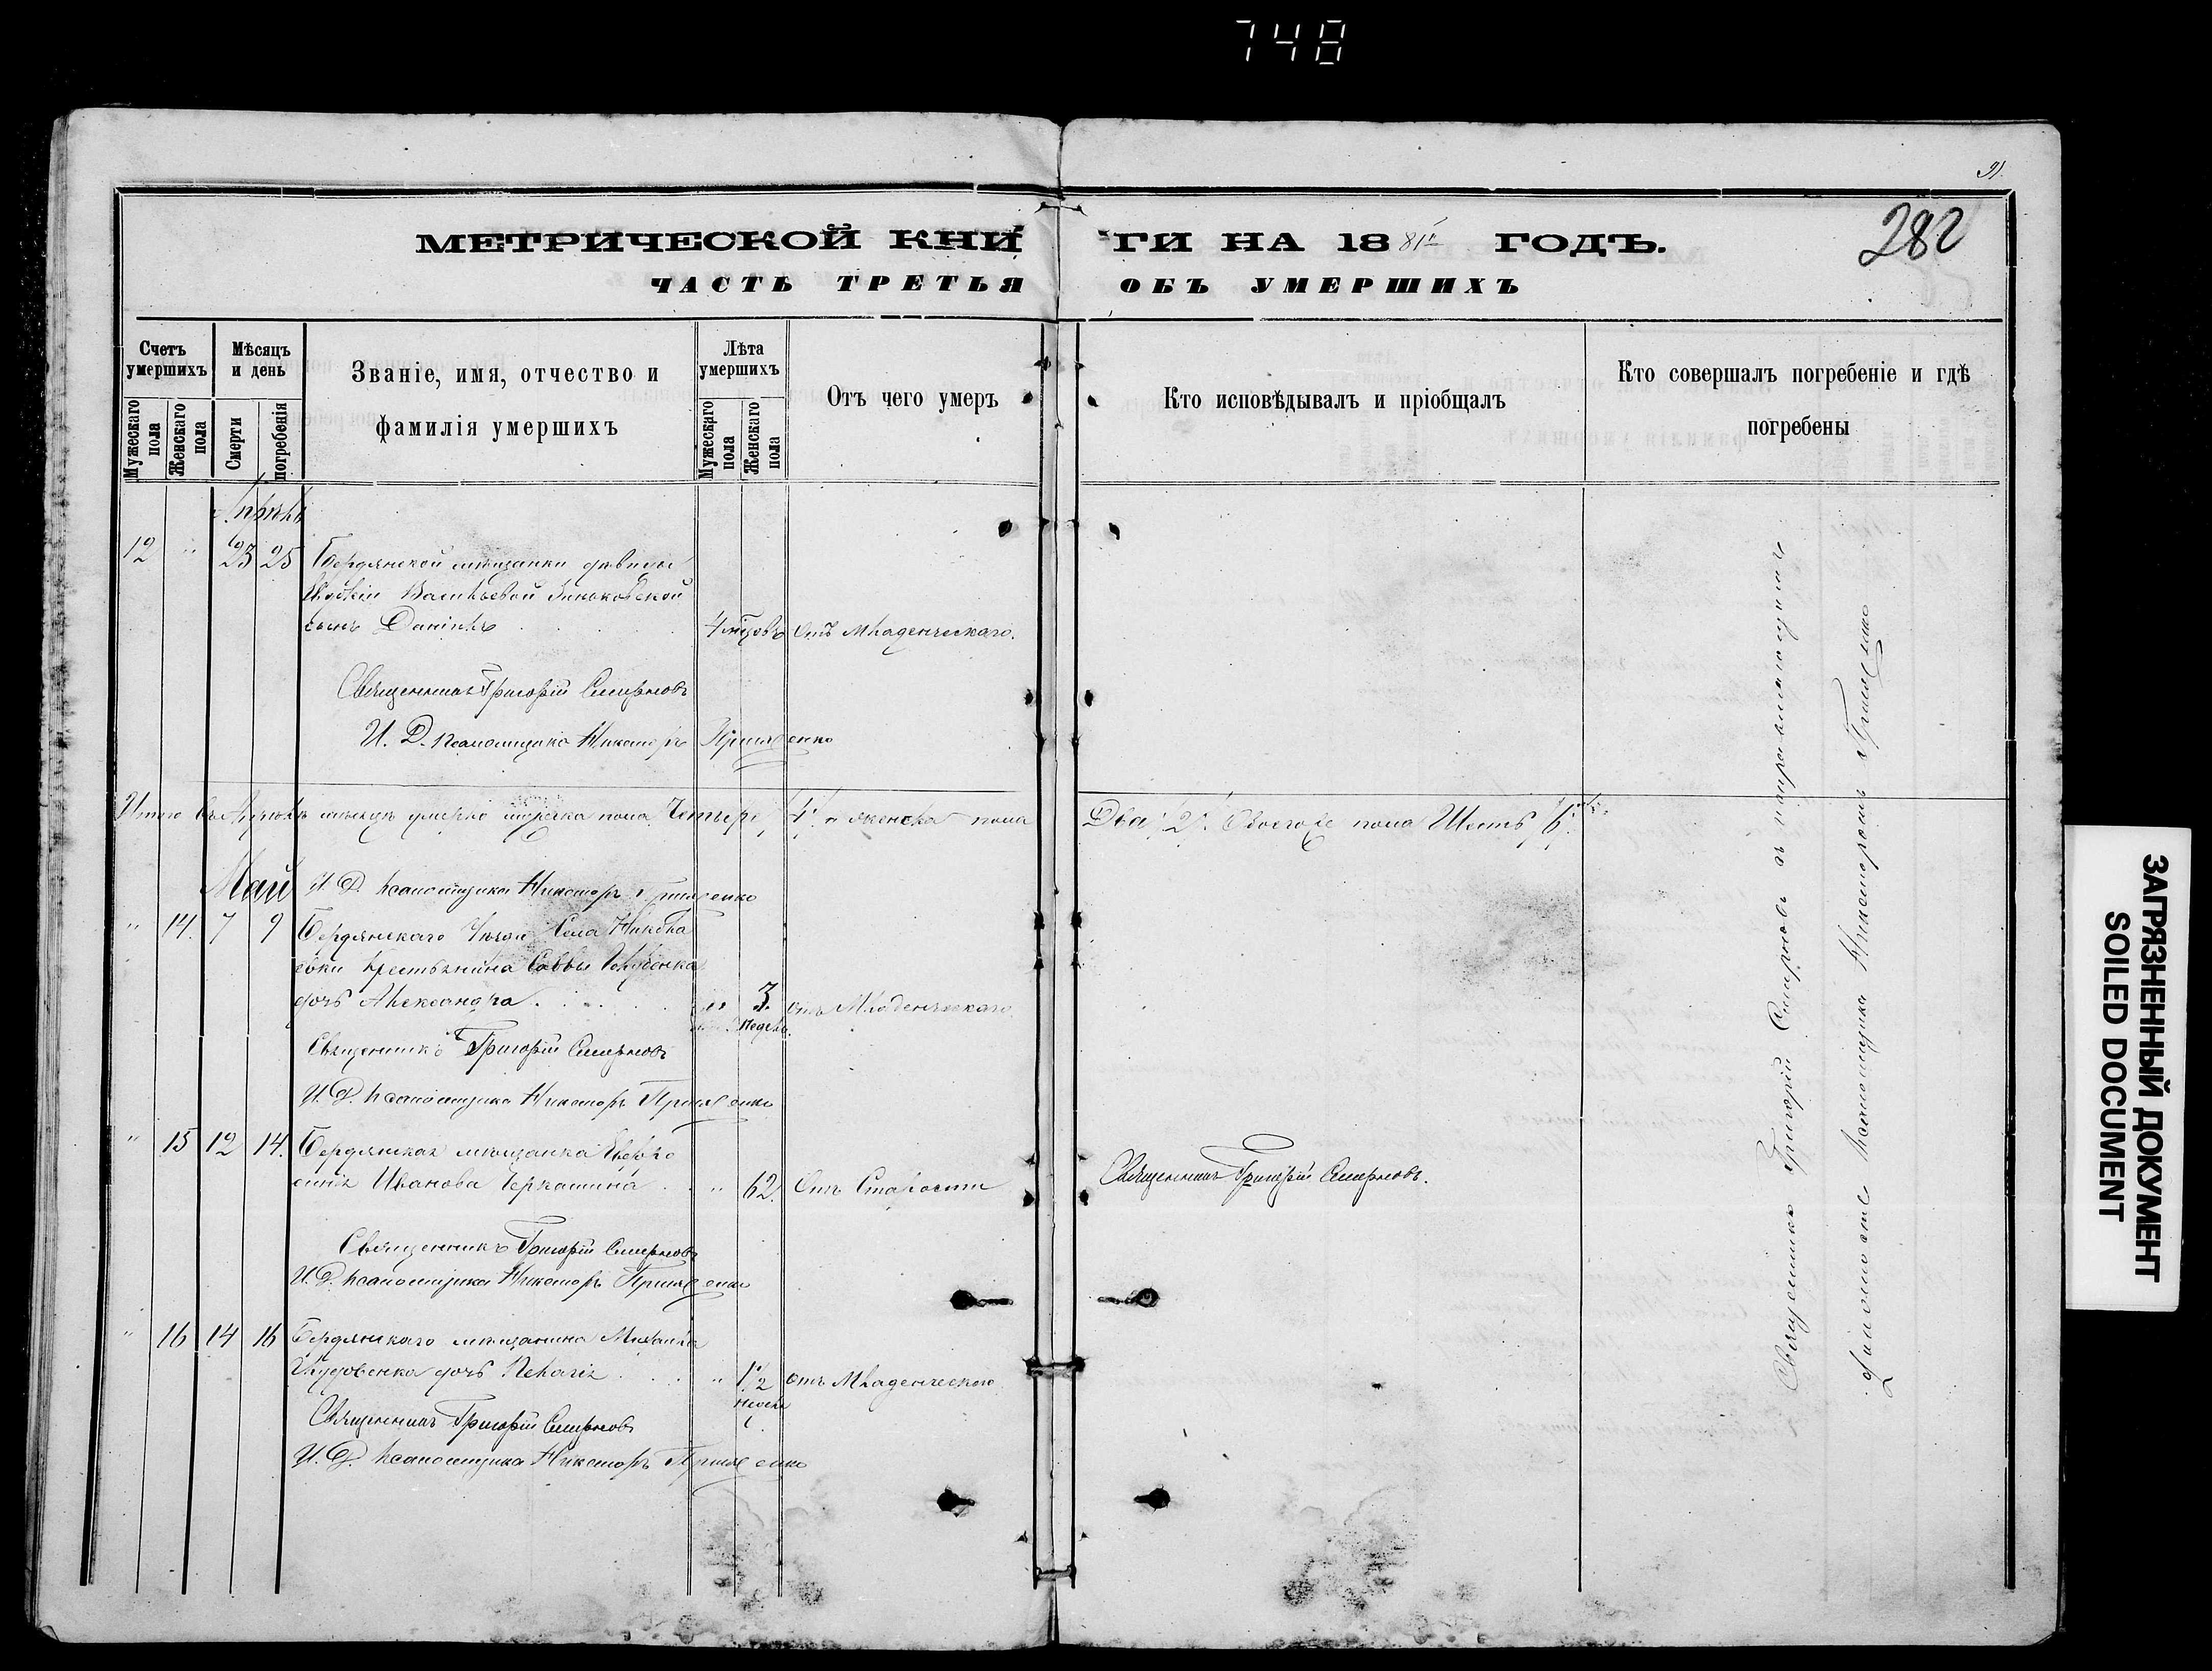 748
91.
282
МЕТРИЧЕСКОЙ КНИГИ НА 1881й ГОДЪ.
ЧАСТЬ ТРЕТЬЯ ОБЪ УМЕРШИХЪ
Счетъ умершихъ
Мужескаго пола
Женскаго пола
Мѣсяцъ и день
Смерти
погребенія
Званіе, имя, отчество и фамилія умершихъ
Лѣта умершихъ
Мужескаго пола
Женскаго пола
Отъ чего умеръ
Кто исповѣдывалъ и пріобщалъ
Кто совершалъ погребеніе и гдѣ погребены
Апрѣль
12 " 23 25 Бердянской мѣщанки дѣвицы
Васильевой
сынъ Даніилъ 4 мѣсяцовъ Отъ младенческаго.
Священникъ Григорій Смирновъ
И. Д. псаломщика Никаноръ
Итого въ Апрѣлѣ мѣсяцѣ умерло мужеска пола Четыре /4/ и женска пола Два /2/ Обоего пола Шесть /6/.
Май
И. Д. псаломщика Никаноръ
" 14. 7 9 Бердянскаго Уѣзда Села Николаевки Крестьянина Саввы
дочь Александра " 3. недѣль. отъ Младенческаго
Священникъ Григорій Смирновъ
И. Д. псаломщика Никаноръ
" 15 12 14. Бердянская мѣщанка Евфросинія Иванова Черкашина " 62. Отъ Старости
Священникъ Григорій Смирновъ.
Священникъ Григорій Смирновъ
И. Д. псаломщика Никаноръ
" 16 14 16 Бердянскаго мѣщанина Михаила
дочь Пелагія " 1 1/2 отъ Младенческаго
Священникъ Григорій Смирновъ
И. Д. псаломщика Никаноръ
Священникъ Григорій Смирновъ
псаломщика Никаноромъ
ЗАГРЯЗНЕННЫЙ ДОКУМЕНТ
SOILED DOCUMENT